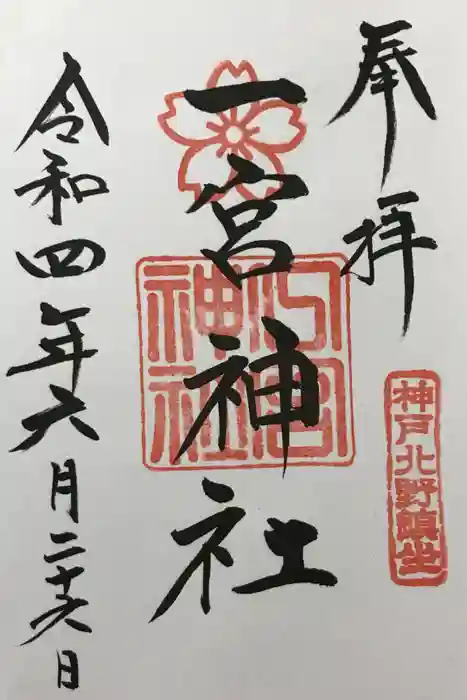 奉拝
神戸北野鎮坐
一宮神社
宮
神社
令和四年六月二十六日